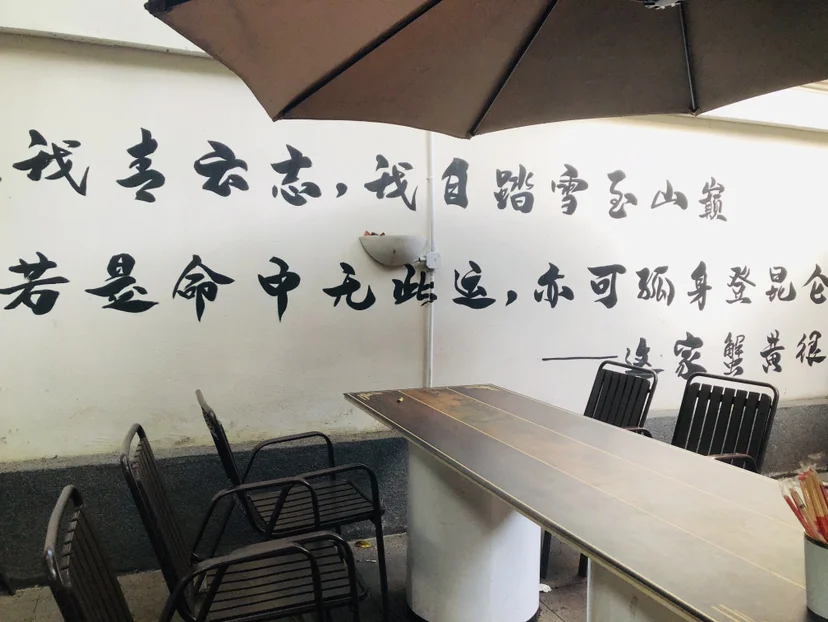 我青云志,我自踏雪至山巅
若是命中无此运,亦可孤身登昆仑
——这家蟹黄很